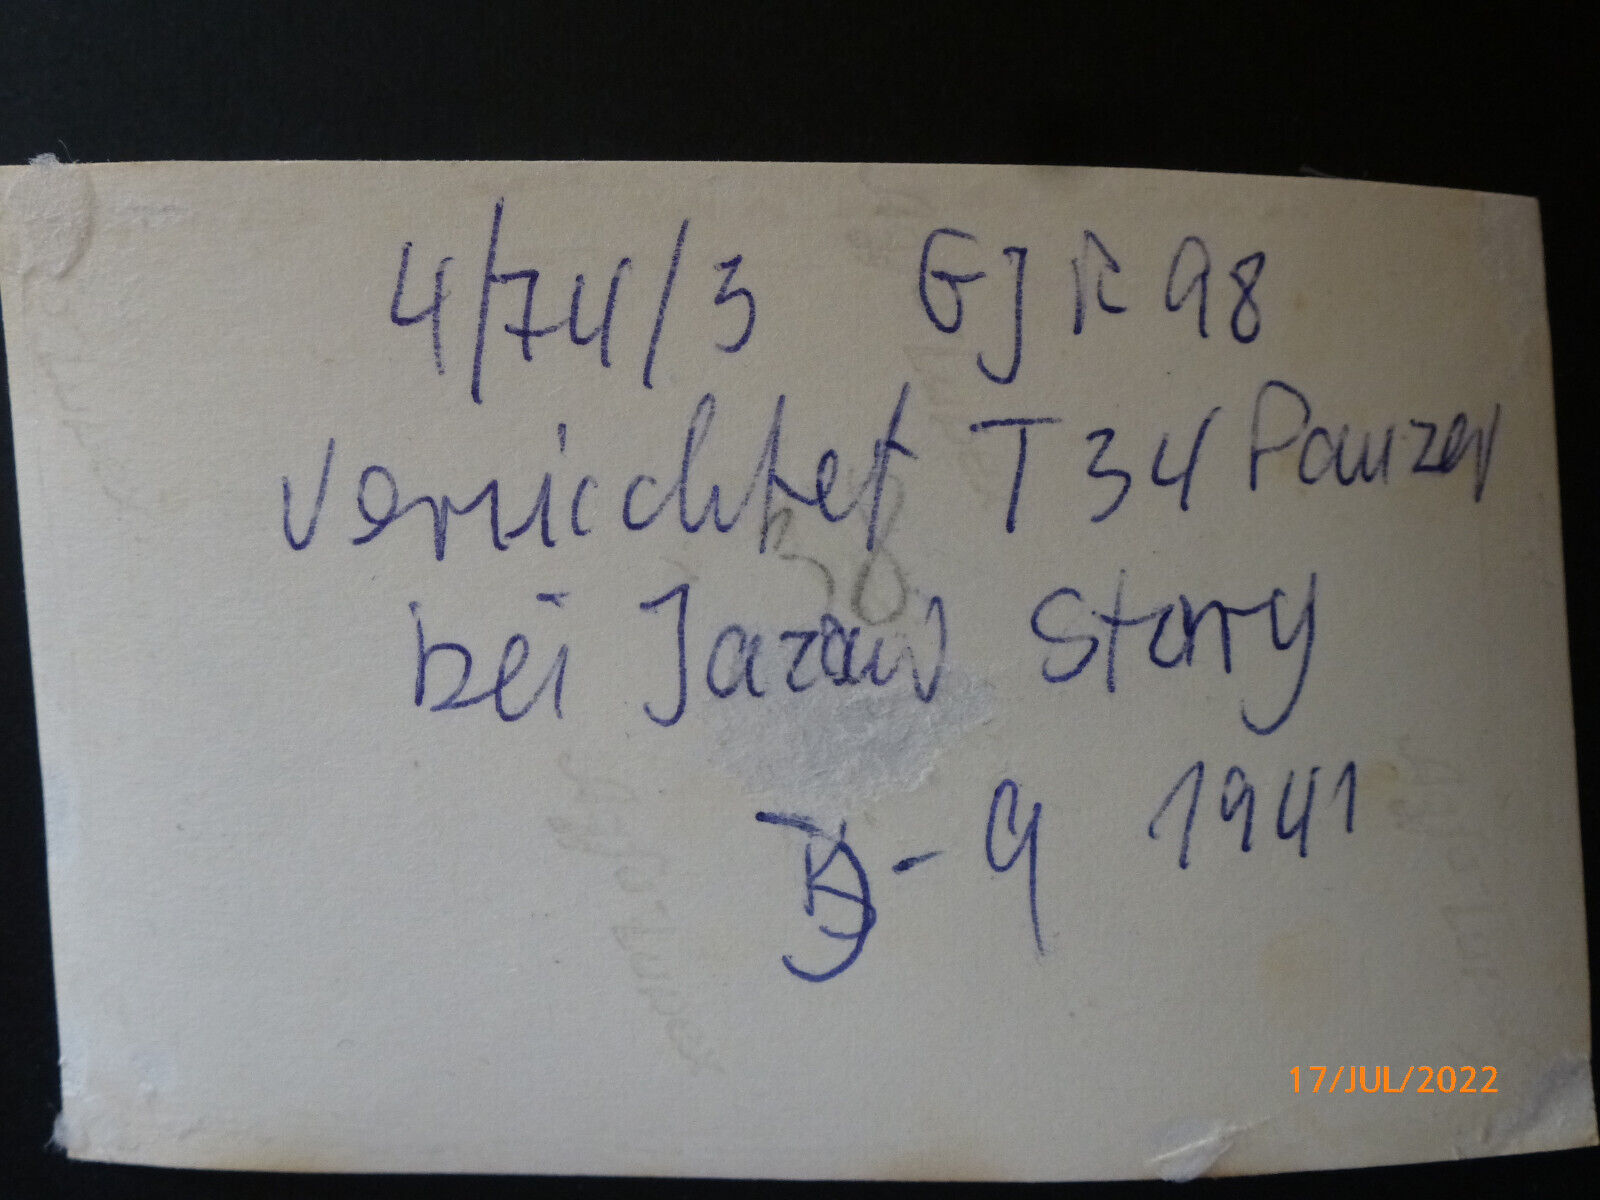 4/74/3 GJR 98
vernichtet T34 Panzer
bei Jarow Starry
- 9 1941
38
17/JUL/2022